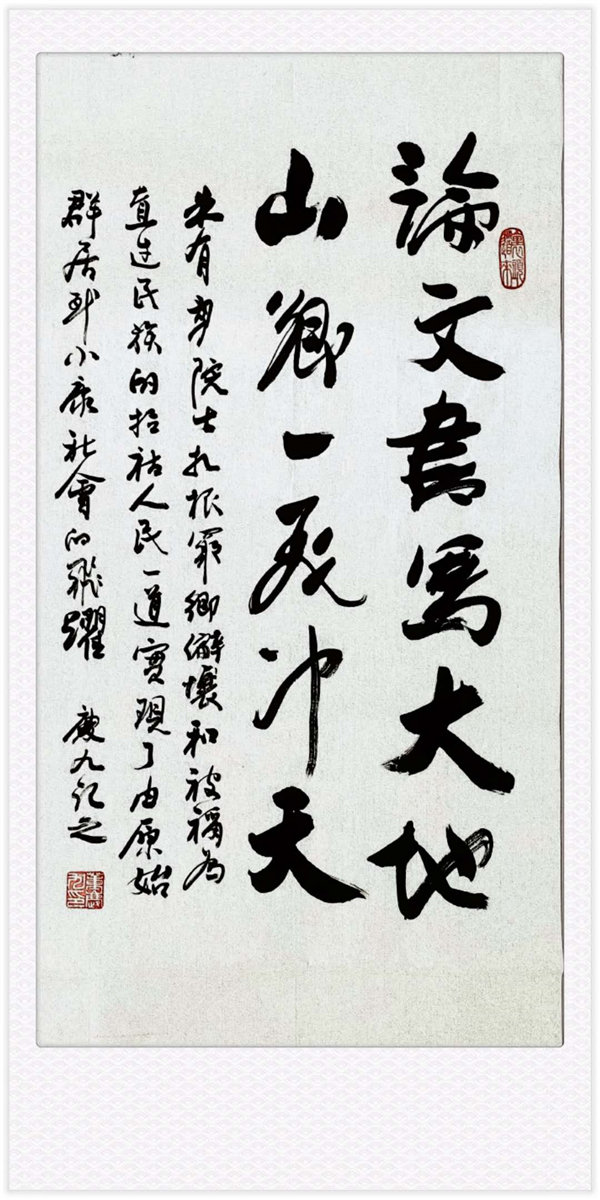 論文書寫大地
山鄉一飛冲天
朱有勇院士扎根窮鄉僻壤和被稱為
直过民族的拉祜人民一道實現了由原始
群居到小康社會的飛躍 慶九记之